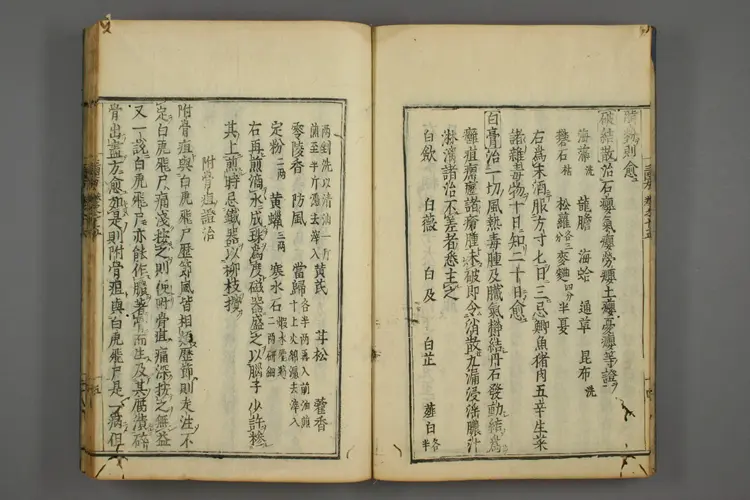 腥物則愈
破結散治石癭氣癭勞癭土癭憂癭等證
海藻洗 龍膽 海蛤 通草 昆布洗
礬石枯 松蘿各三 麥麴四分 半夏
右為末酒服方寸七日三忌鯽魚豬肉五辛生菜
諸雜毒物十日知二十日愈
白膏治一切風熱毒腫及臟氣欎結丹石發動結為
癰疽瘡癤諸瘡腫未破即令消散九漏浸淫膿汁
淋瀝諸治不差者悉主之
白歛 白薇 白及 白芷 薤白各半
兩剉洗以清油一斤
黃芪 甘松 藿香
零陵香 防風 當歸
定粉二兩 黃蠟三兩 寒水石二兩研細
右再煎滴水成珠為度磁器盛之以膩子少許摻
其上煎時忌鐵器以柳枝攪
附骨疽證治
附骨疽與白虎飛尸歷節風皆相類歷節則走注不
定白虎飛尸痛淺按之則便附骨疽痛深按之無益
又一說白虎飛尸亦能作膿著骨而生及其腐潰碎
骨出盡方愈如是則附骨疽與白虎飛尸是一病但